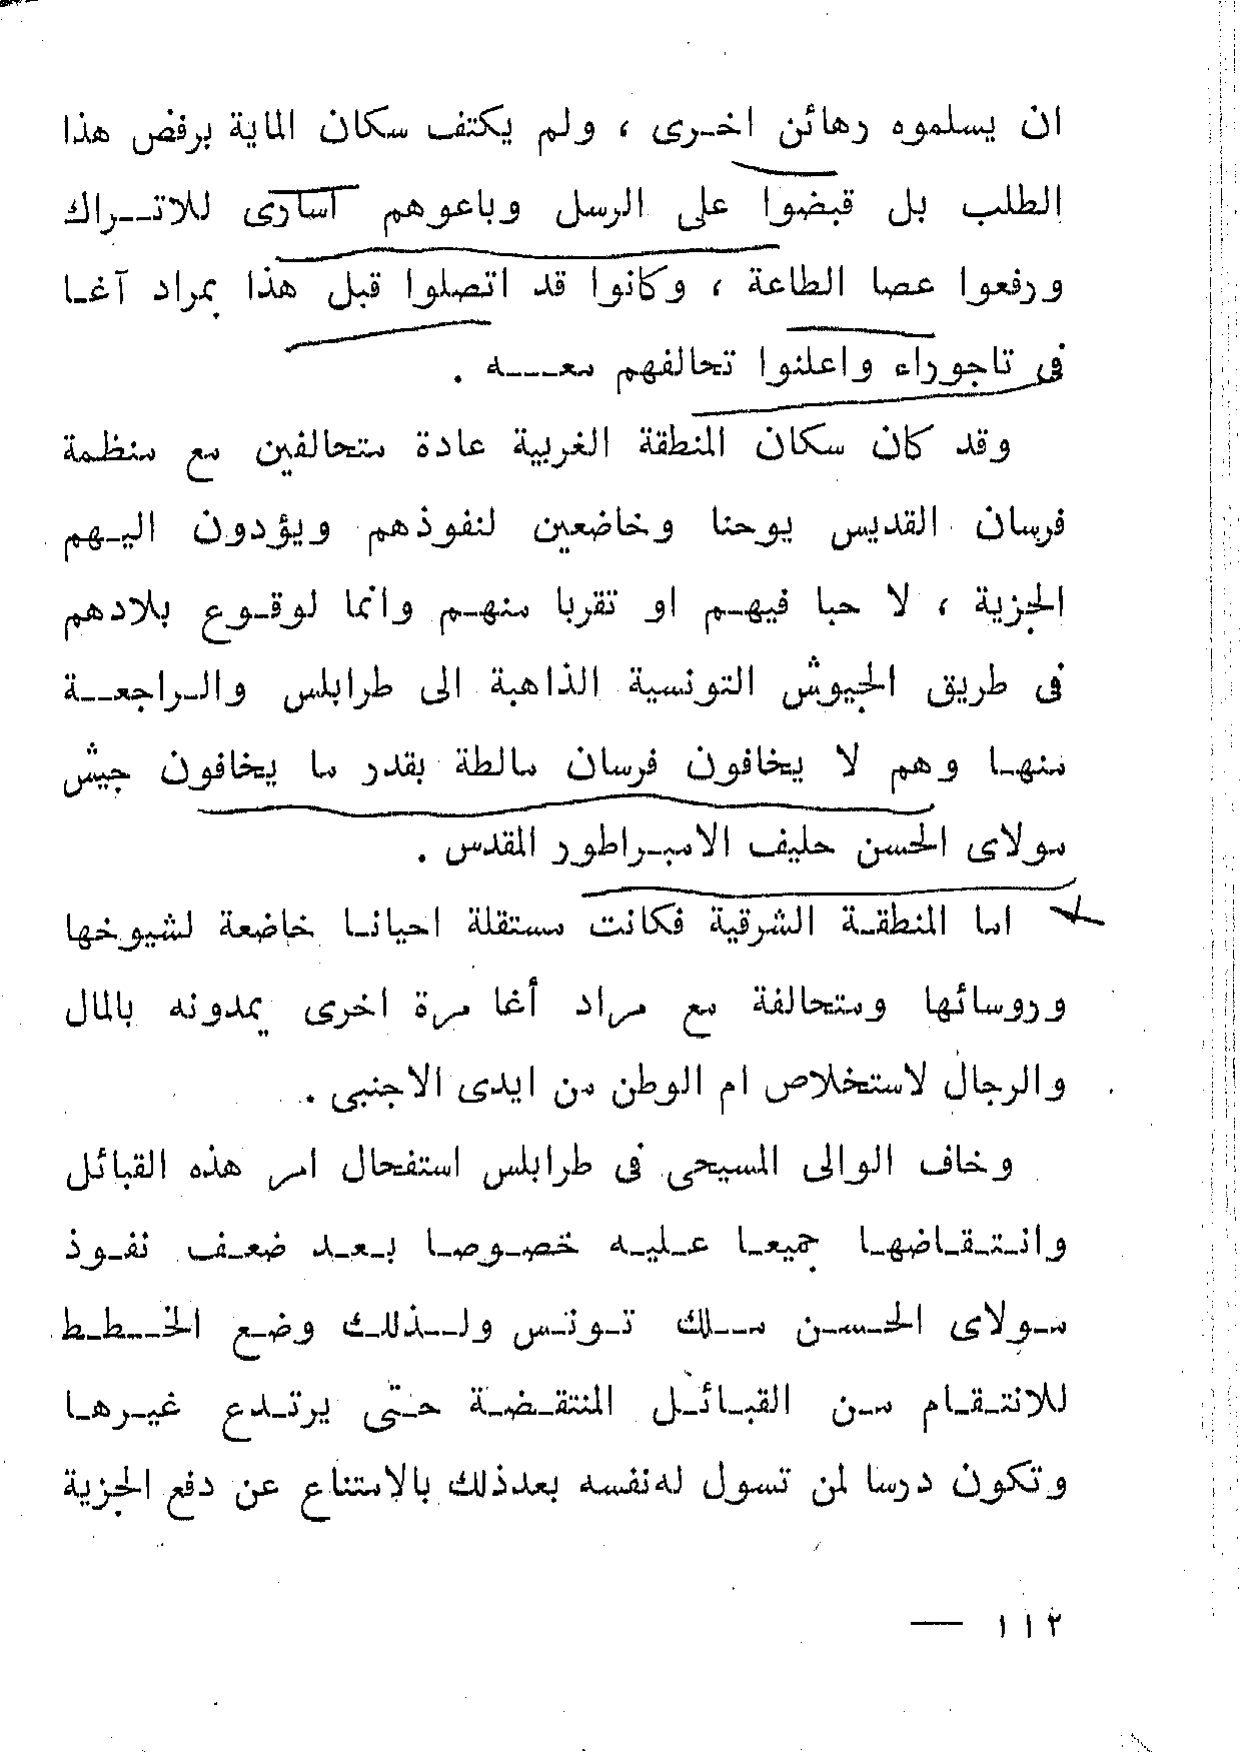 ان يسلموه رهائن اخرى ، ولم يكتف سكان الماية برفض هذا
الطلب بل قبضوا على الرسل وباعوهم أسارى للاتراك
ورفعوا عصا الطاعة ، وكانوا قد اتصلوا قبل هذا بمراد آغا
فى تاجوراء واعلنوا تحالفهم معه .
وقد كان سكان المنطقة الغربية عادة متحالفين مع منظمة
فرسان القديس يوحنا وخاضعين لنفوذهم ويؤدون اليهم
الجزية ، لا حبا فيهم او تقربا منهم وانما لوقوع بلادهم
فى طريق الجيوش التونسية الذاهبة الى طرابلس والراجعة
منها وهم لا يخافون فرسان مالطة بقدر ما يخافون جيش
مولاى الحسن حليف الامبراطور المقدس .
اما المنطقة الشرقية فكانت مستقلة احيانا خاضعة لشيوخها
وروسائها ومتحالفة مع مراد أغا مرة اخرى يمدونه بالمال
والرجال لاستخلاص ام الوطن من ايدى الاجنبى .
وخاف الوالى المسيحى فى طرابلس استفحال امر هذه القبائل
وانتقاضها جميعا عليه خصوصا بعد ضعف نفوذ
مولاى الحسن ملك تونس ولذلك وضع الخطط
للانتقام من القبائل المنتقضة حتى يرتدع غيرها
وتكون درسا لمن تسول له نفسه بعد ذلك بالامتناع عن دفع الجزية
١١٢ —